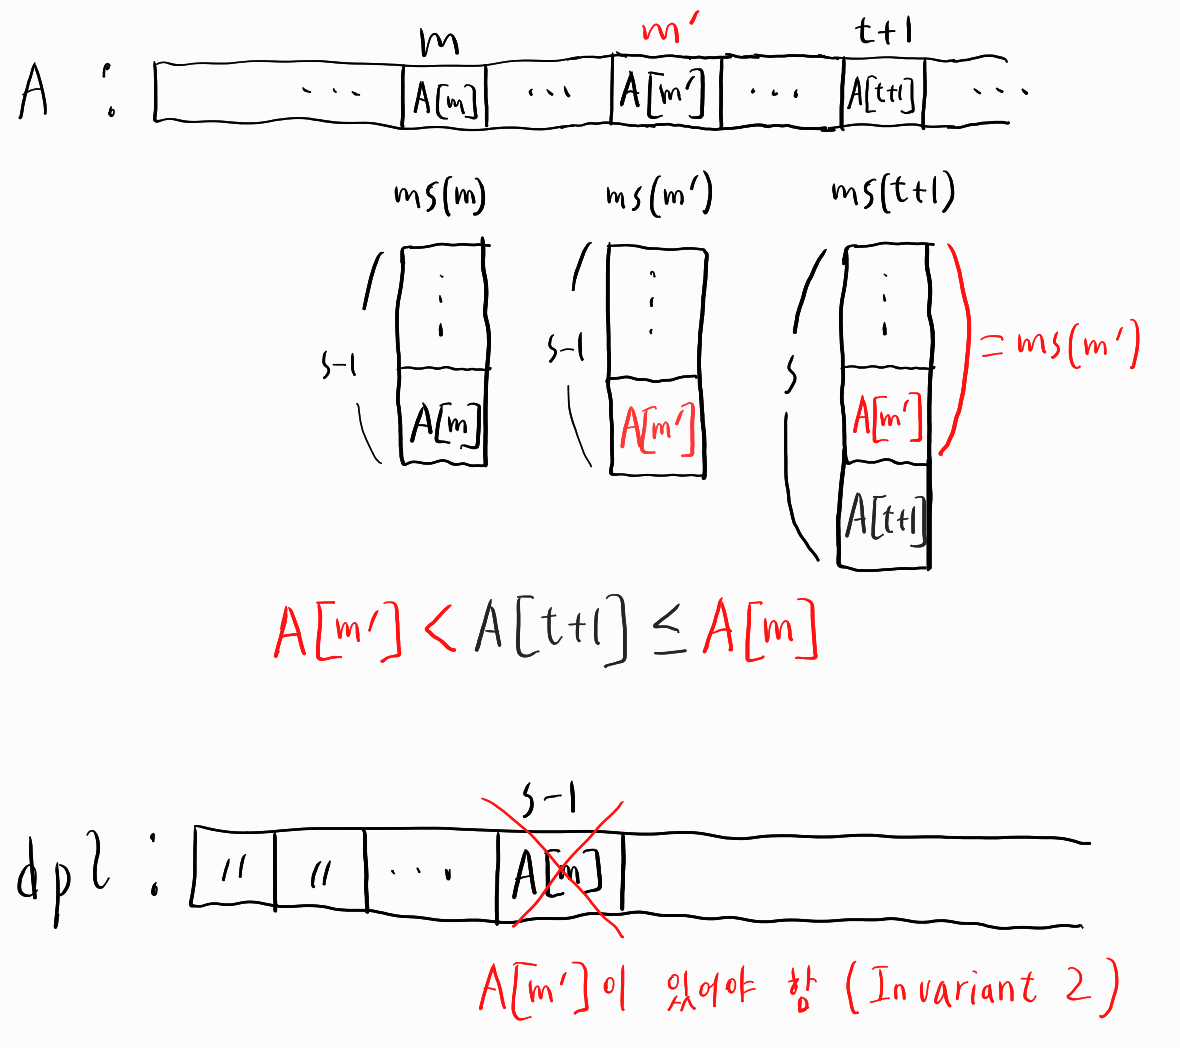 m m′ t+1
A : ... A[m] ... A[m′] ... A[t+1] ...
ms(m) ms(m′) ms(t+1)
s-1 s-1 s = ms(m′)
A[m] A[m′] A[m′]
A[t+1]
A[m′] < A[t+1] ≤ A[m]
s-1
dp2 : " " ... A[m]
A[m′]이 있어야 함 (Invariant 2)